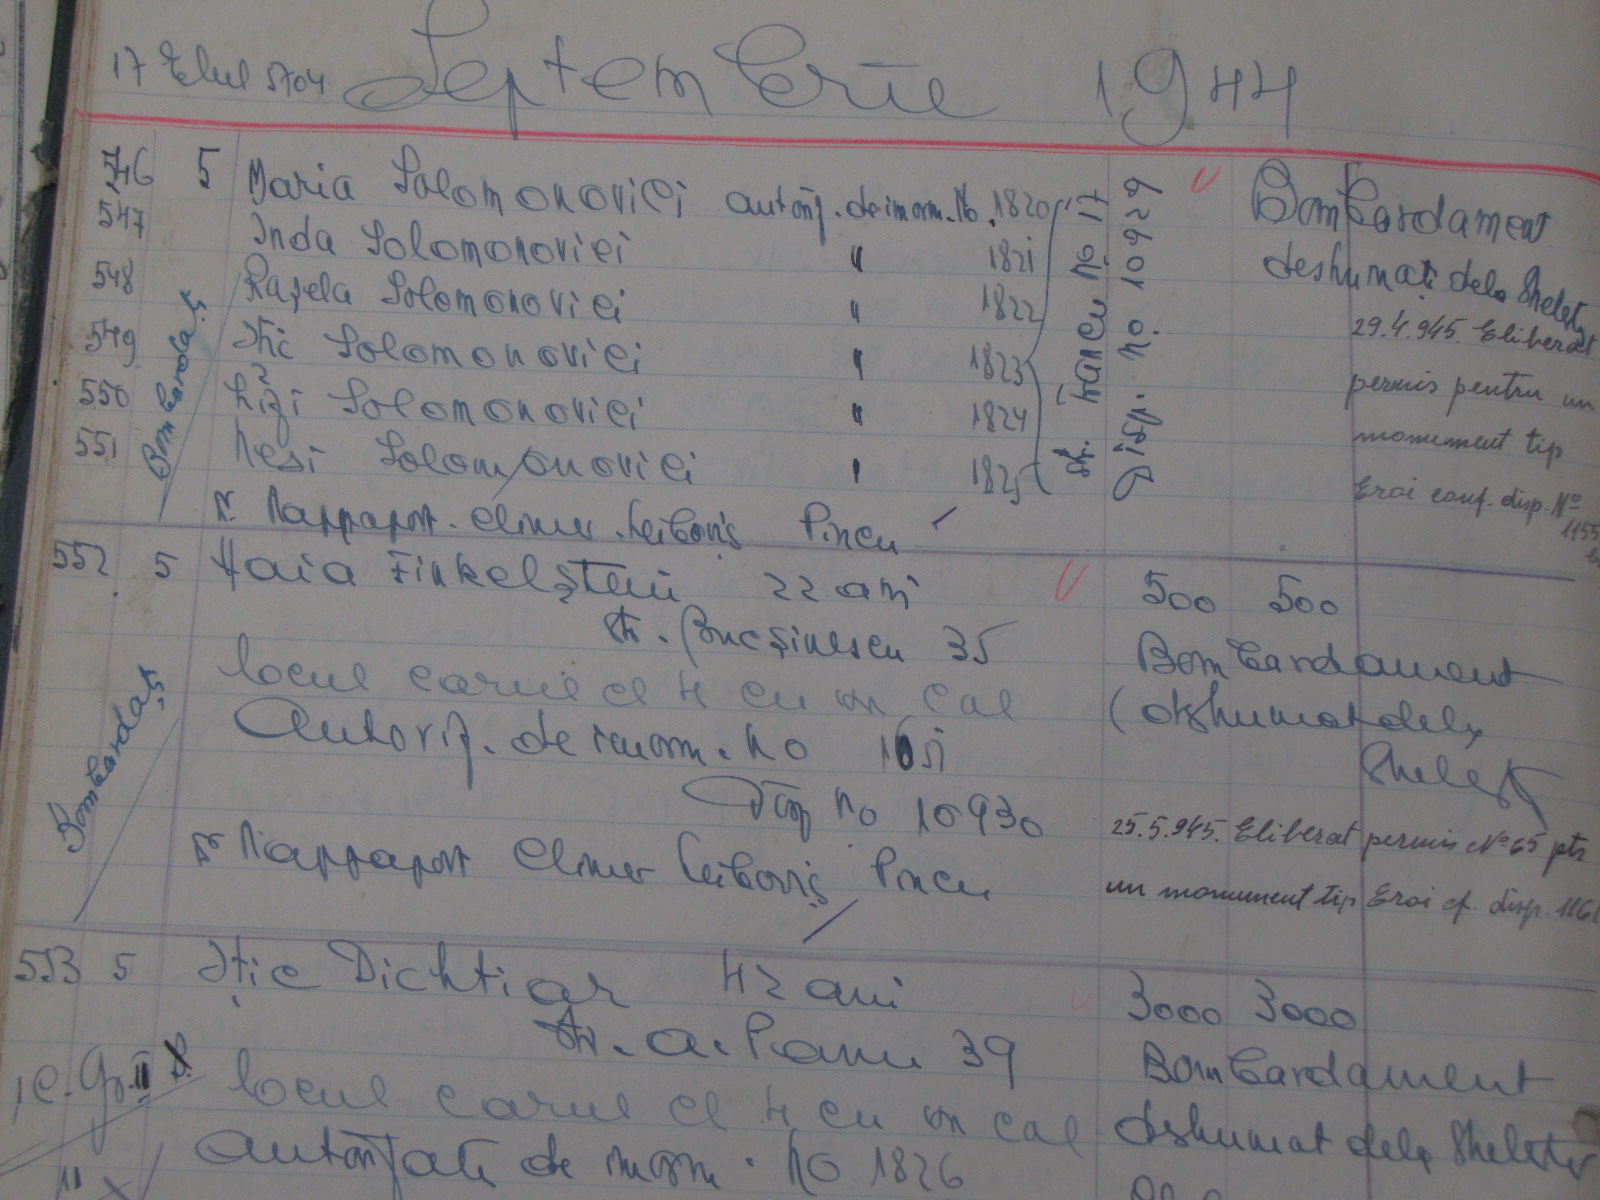 17 Elul 5704 Septembrie 1944
546 5 Maria Solomonovici autoriz. de inorm. No. 1820
547 Inda Solomonovici " 1821
548 Rașela Solomonovici " 1822
549 Ițic Solomonovici " 1823
550 Lizi Solomonovici " 1824
551 Nesi Solomonovici " 1825
Str. Iancu No 17
Disp. No. 10929
Bombardament
deshumați dela Shelet
29.4.945. Eliberat
permis pentru un
monument tip
Eroi conf. disp. No
1155
Bombardaț
Dr. Rappaport. Eliner. Leiboviș Pincu
552 5 Haia Finkelștein 22 ani 500 500
Str. Bucșinescu 35 Bombardament
locul carul cl 4 cu un cal (deshumat dela
Autoriz. de inorm. No Shelet
Disp No 10930
25.5.945. Eliberat permis No 65 ptr
un monument tip Eroi cf. disp.
Bombardaț
Dr Rappaport Eliner Leiboviș Pincu
553 5 Ițic Dichtiar 42 ani 3000 3000
Str. A. Panu 39 Bombardament
locul carul cl 4 cu un cal deshumat dela
autorizați de inorm. No 1826